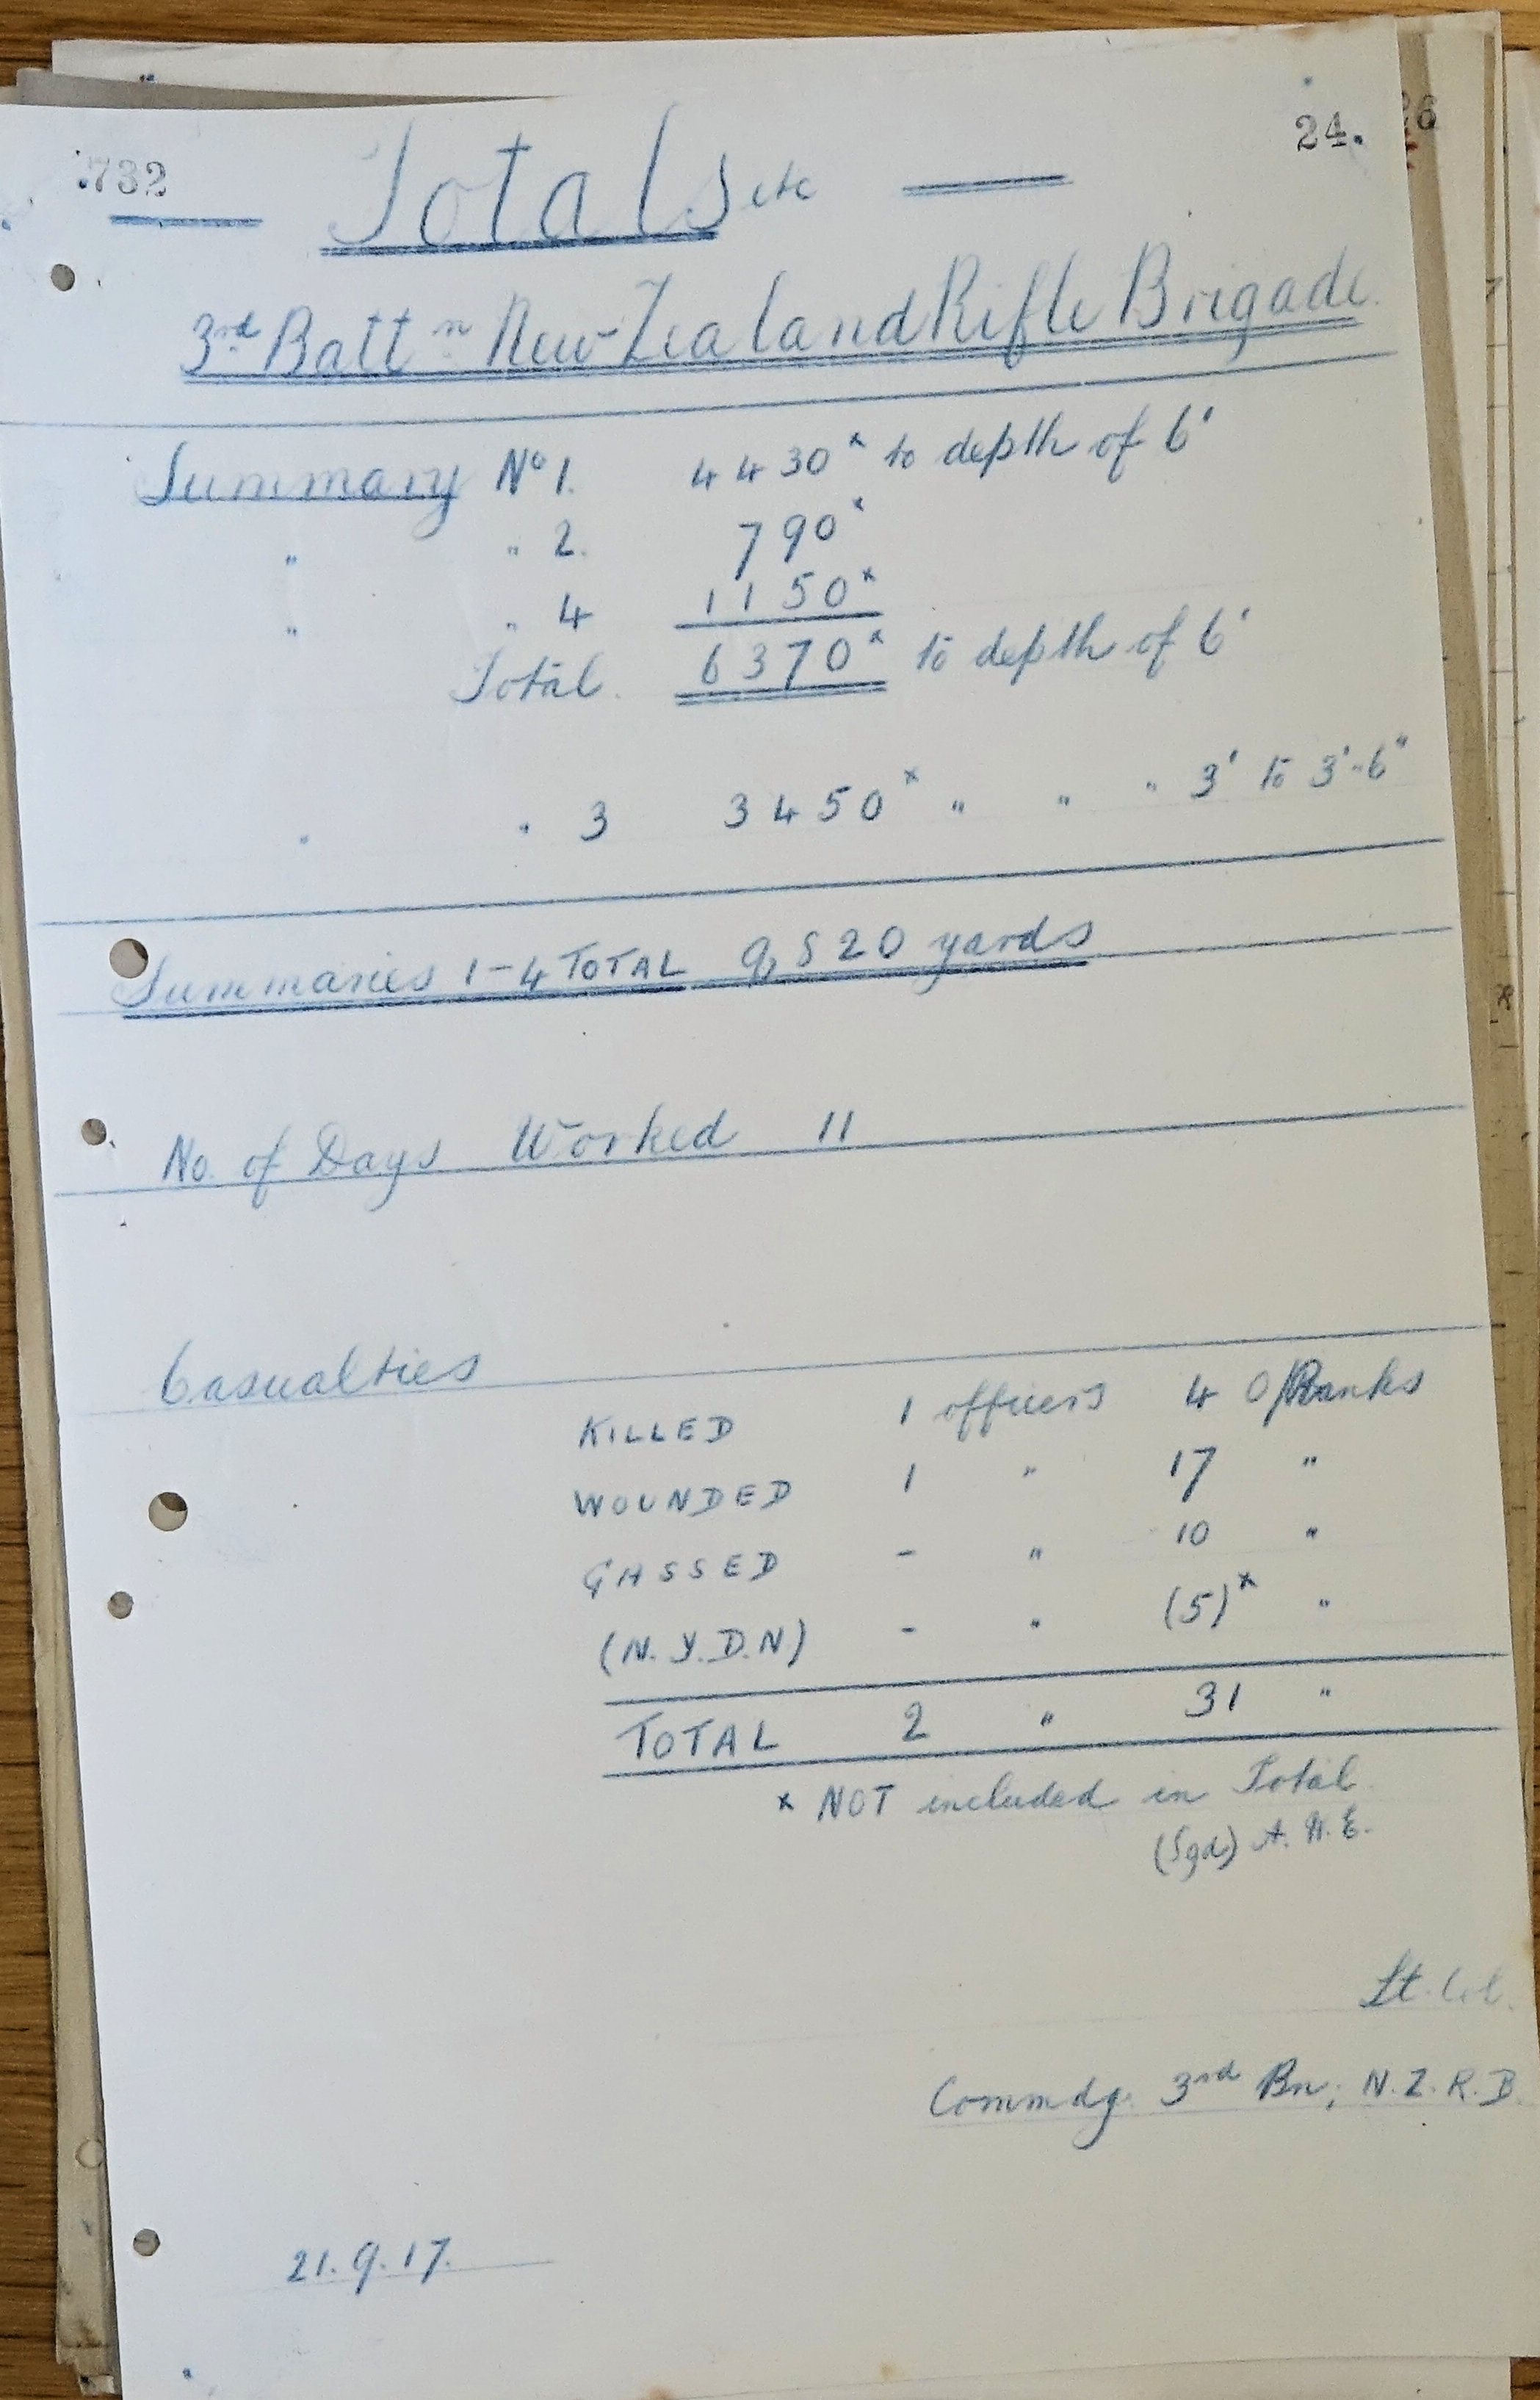 732
24.
26
Totals etc
3rd Battn New Zealand Rifle Brigade.
Summary No 1. 4430x to depth of 6'
" " 2. 790x
" " 4 1150x
Total. 6370x to depth of 6'
" " 3 3450x " " " 3' to 3'-6"
Summaries 1-4 TOTAL 9,820 yards
No. of Days Worked 11
Casualties
KILLED 1 officers 4 O/Ranks
WOUNDED 1 " 17 "
GASSED - " 10 "
(N.Y.D.N) - " (5)x "
TOTAL 2 " 31 "
x NOT included in Total.
(Sgd) A.W.E.
Lt. Col.
Commdg. 3rd Bn, N.Z.R.B.
21.9.17.